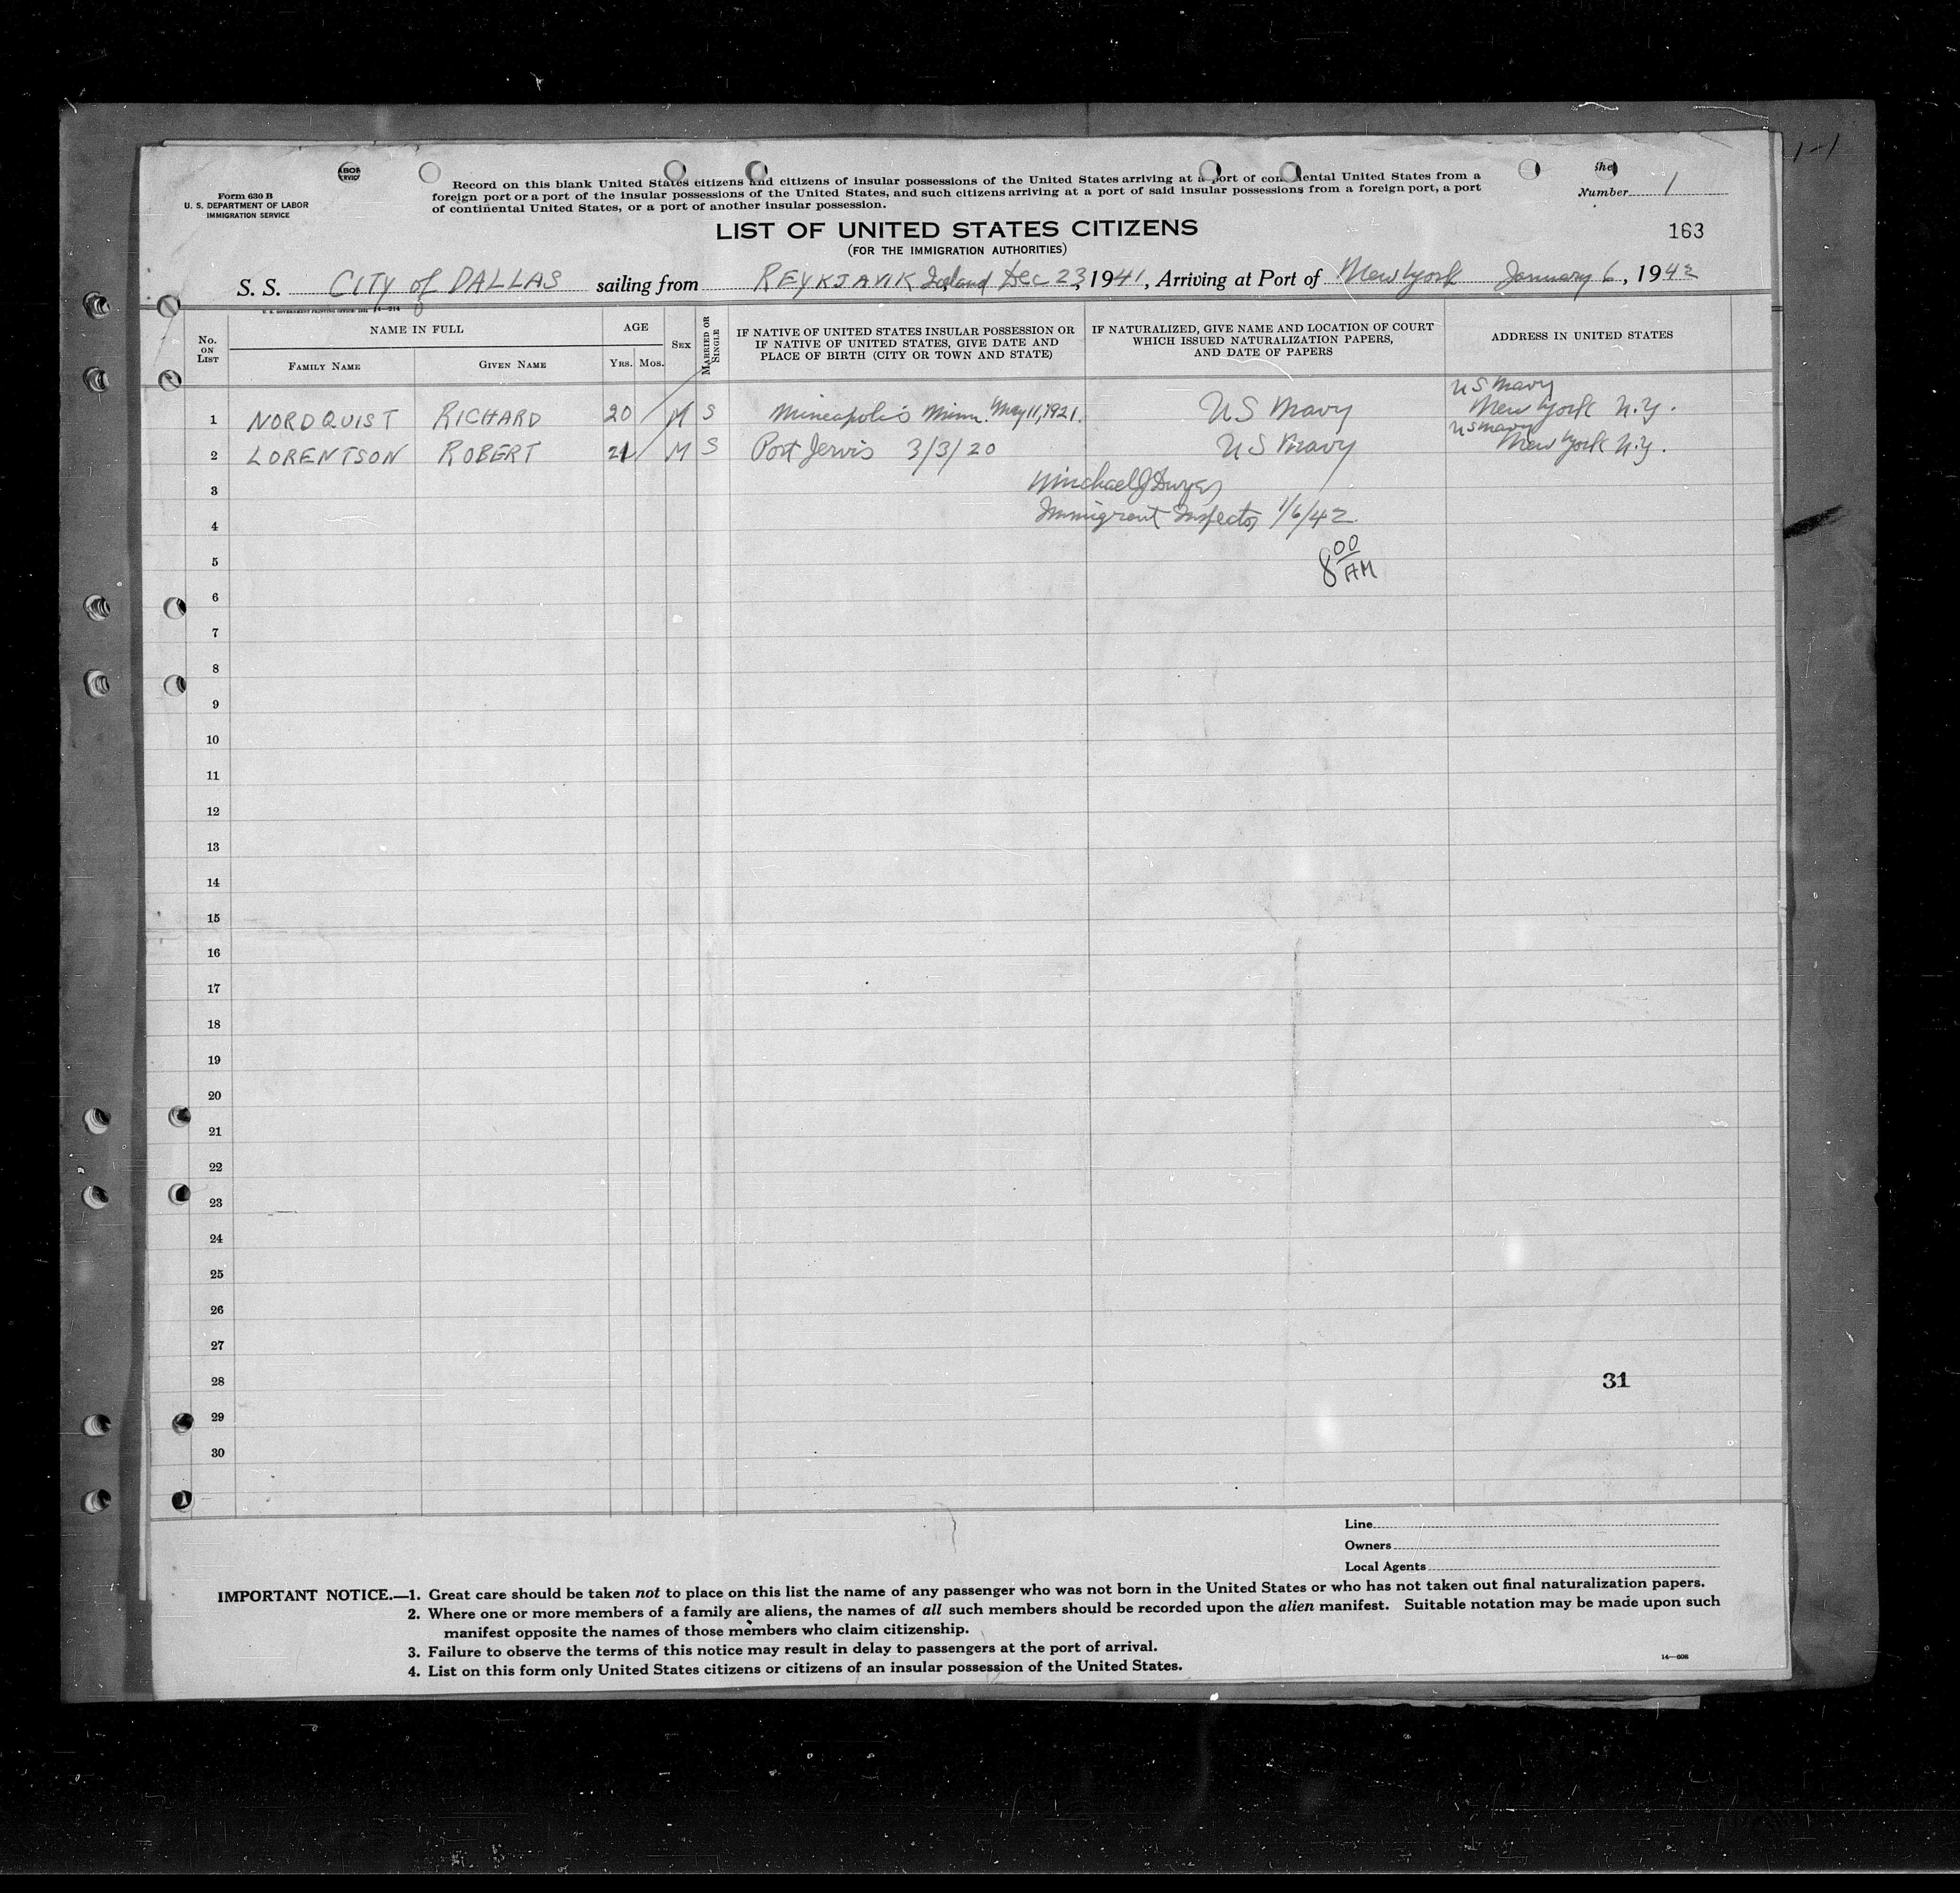 1-1
Form 630 B
U. S. DEPARTMENT OF LABOR
IMMIGRATION SERVICE
Record on this blank United States citizens and citizens of insular possessions of the United States arriving at a port of continental United States from a
foreign port or a port of the insular possessions of the United States, and such citizens arriving at a port of said insular possessions from a foreign port, a port
of continental United States, or a port of another insular possession.
Number 1
LIST OF UNITED STATES CITIZENS
(FOR THE IMMIGRATION AUTHORITIES)
163
S. S. CITY of DALLAS sailing from REYKJAVIK Iceland Dec 23, 1941, Arriving at Port of New York January 6, 1942
U. S. GOVERNMENT PRINTING OFFICE 14—214
No. ON LIST
NAME IN FULL
FAMILY NAME
GIVEN NAME
AGE
YRS. MOS.
SEX
MARRIED OR SINGLE
IF NATIVE OF UNITED STATES INSULAR POSSESSION OR
IF NATIVE OF UNITED STATES, GIVE DATE AND
PLACE OF BIRTH (CITY OR TOWN AND STATE)
IF NATURALIZED, GIVE NAME AND LOCATION OF COURT
WHICH ISSUED NATURALIZATION PAPERS,
AND DATE OF PAPERS
ADDRESS IN UNITED STATES
US Navy
1 NORDQUIST RICHARD 20 M S Mineapolis Minn. May 11, 1921. US Navy New York N.Y.
US Navy
2 LORENTSON ROBERT 21 M S Port Jervis 3/3/20 US Navy New York N.Y.
3 Michael J Dwyer
4 Immigrant Inspector 1/6/42
5 8 00 AM
6
7
8
9
10
11
12
13
14
15
16
17
18
19
20
21
22
23
24
25
26
27
28 31
29
30
Line
Owners
Local Agents
IMPORTANT NOTICE.—1. Great care should be taken not to place on this list the name of any passenger who was not born in the United States or who has not taken out final naturalization papers.
2. Where one or more members of a family are aliens, the names of all such members should be recorded upon the alien manifest. Suitable notation may be made upon such
manifest opposite the names of those members who claim citizenship.
3. Failure to observe the terms of this notice may result in delay to passengers at the port of arrival.
4. List on this form only United States citizens or citizens of an insular possession of the United States.
14—606